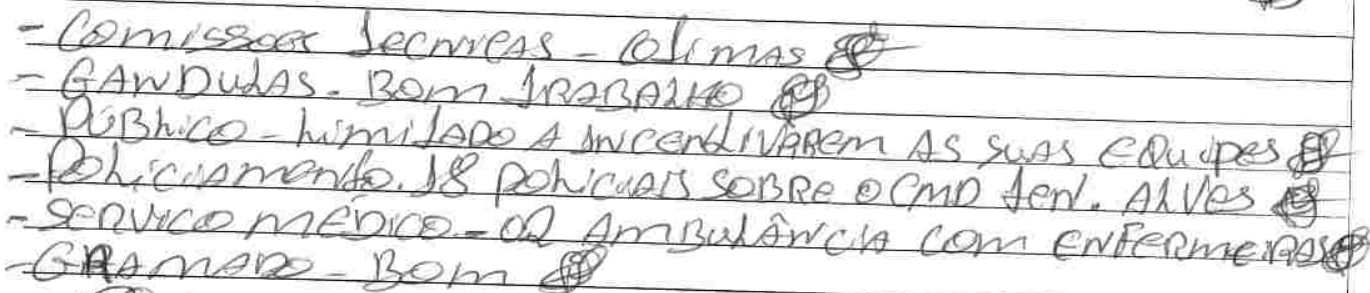 - Comissoes Tecnicas - Otimas
- GANDULAS - Bom TRABALHO
- PÚBLICO - LimiTADO A INCENTIVAREM AS SUAS EQUIPES
- POLICIAMENTO. 18 POLICIAIS SOBRE O CMD TEN. ALVES
- SERVICO MÉDICO - 02 AMBULÂNCIA COM ENFERMEIRAS
- GRAMADO - Bom